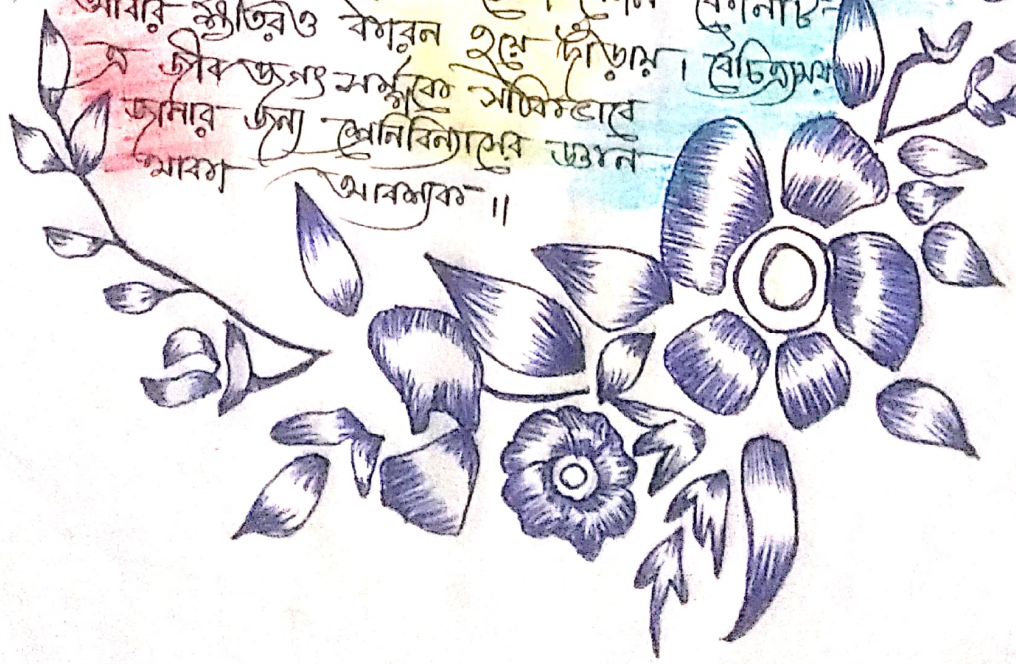 আবার ক্ষতিরও কারন হয়ে দাঁড়ায়। বৈচিত্র্যময়
এ জীব জগৎ সর্ম্পকে সঠিকভাবে
জানার জন্য শ্রেনিবিন্যাসের জ্ঞান
থাকা আবশ্যক॥